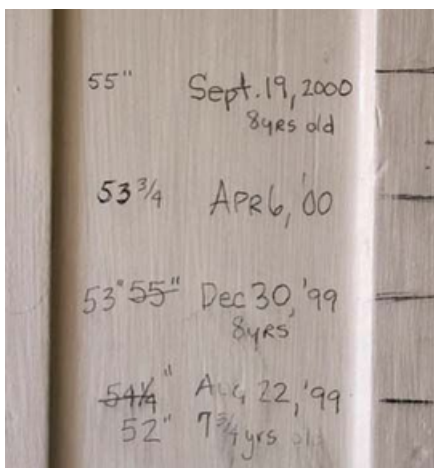 55" Sept. 19, 2000
8yrs old
53 3/4 APR 6, '00
53" 55" Dec 30, '99
8yrs
54 1/4" Aug 22, '99
52" 7 3/4 yrs old